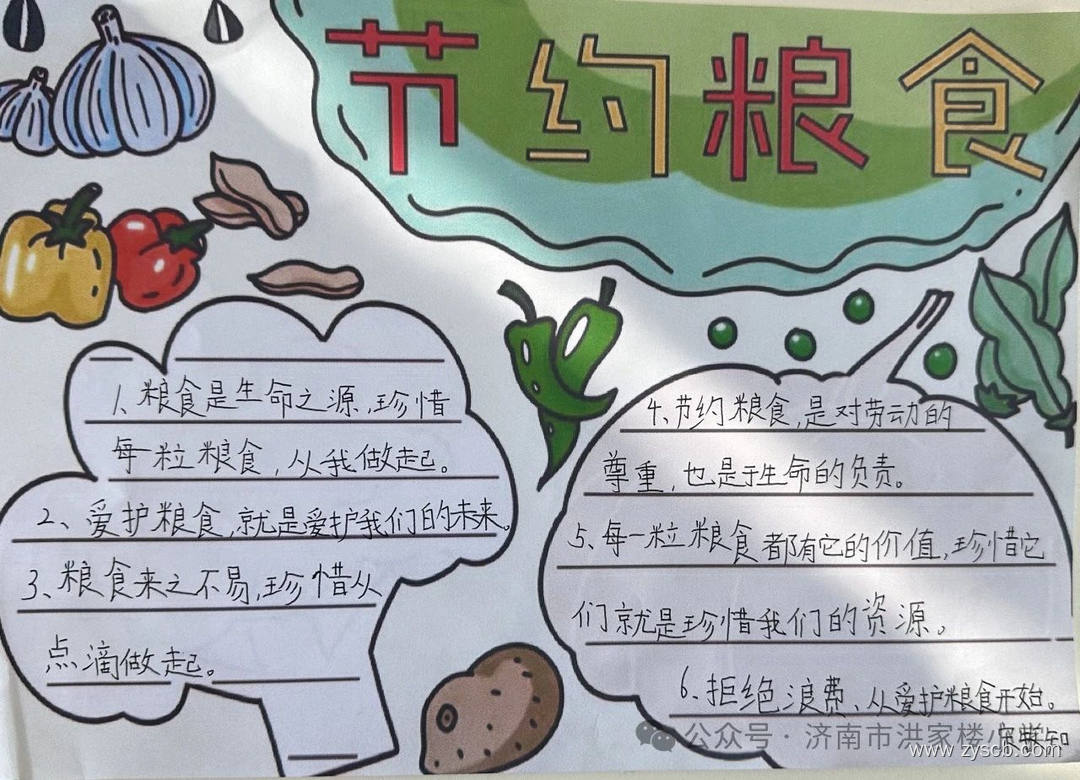 节约粮食
1、粮食是生命之源,珍惜
每一粒粮食,从我做起。
2、爱护粮食,就是爱护我们的未来。
3、粮食来之不易,珍惜从
点滴做起。
4、节约粮食,是对劳动的
尊重,也是于生命的负责。
5、每一粒粮食都有它的价值,珍惜它
们就是珍惜我们的资源。
6、拒绝浪费、从爱护粮食开始。
公众号·济南市洪家楼小学
www.zyscb.com